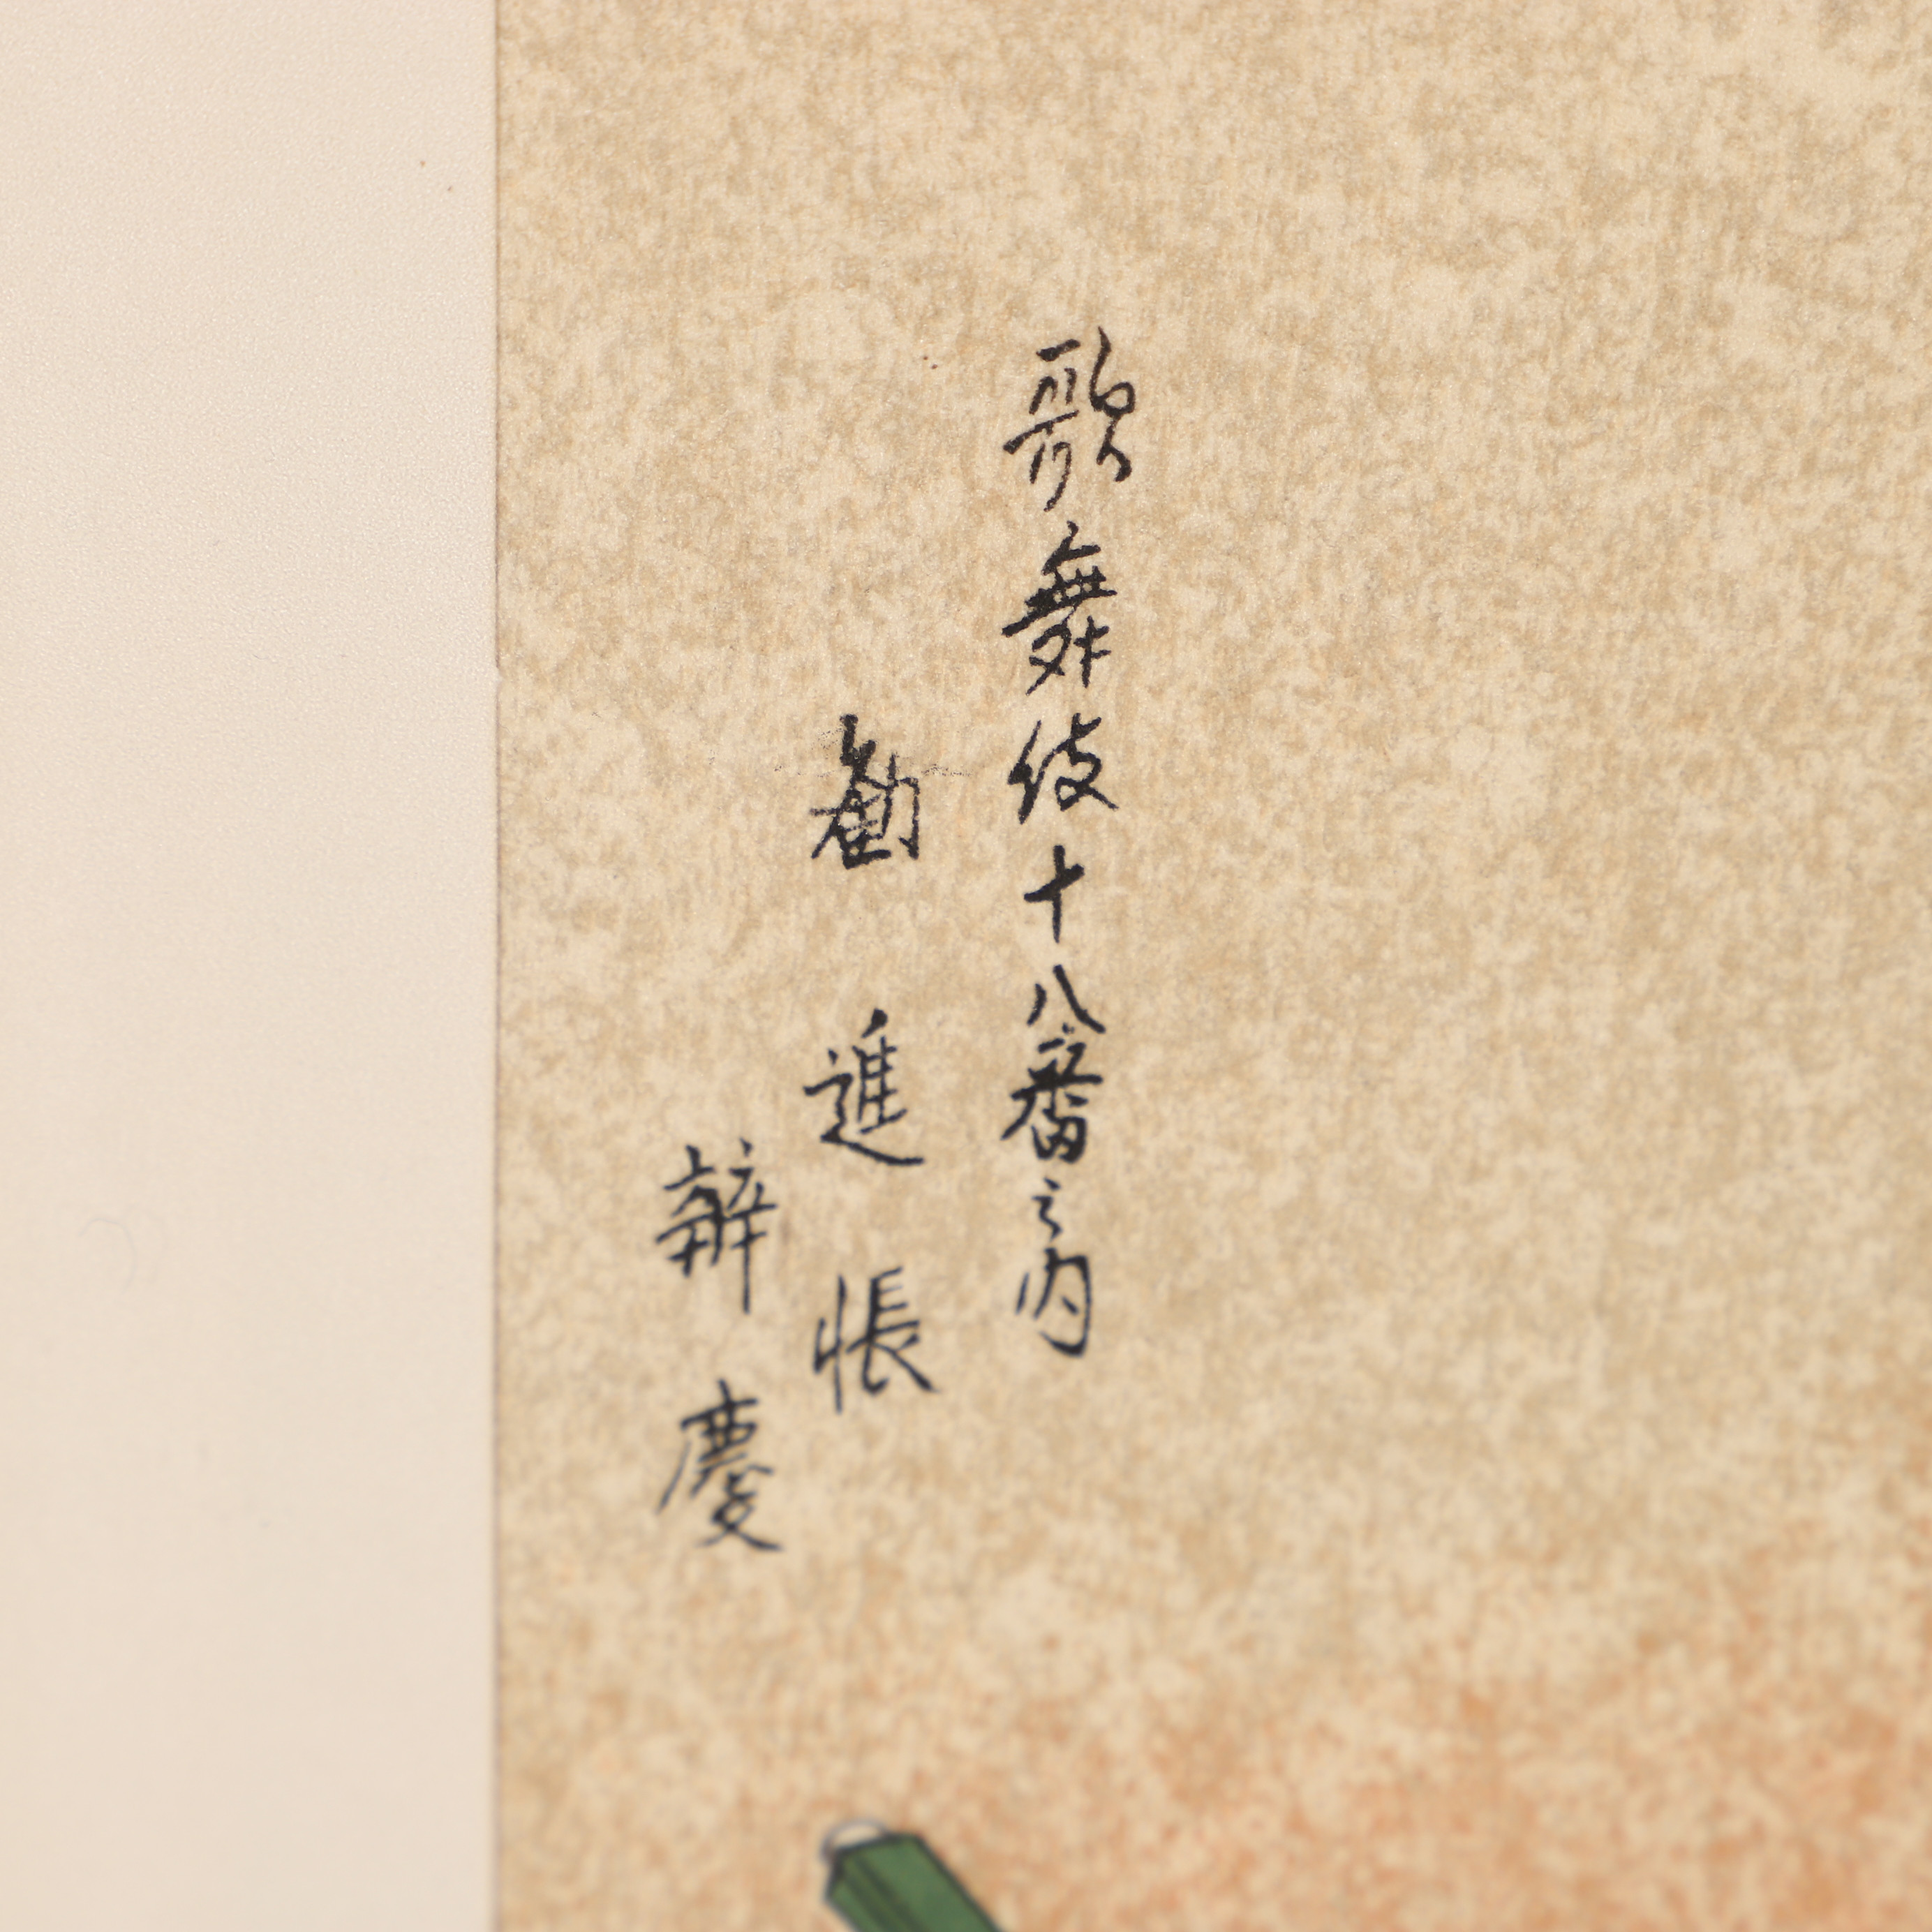 歌舞伎十八番之内
勧進帳
辨慶